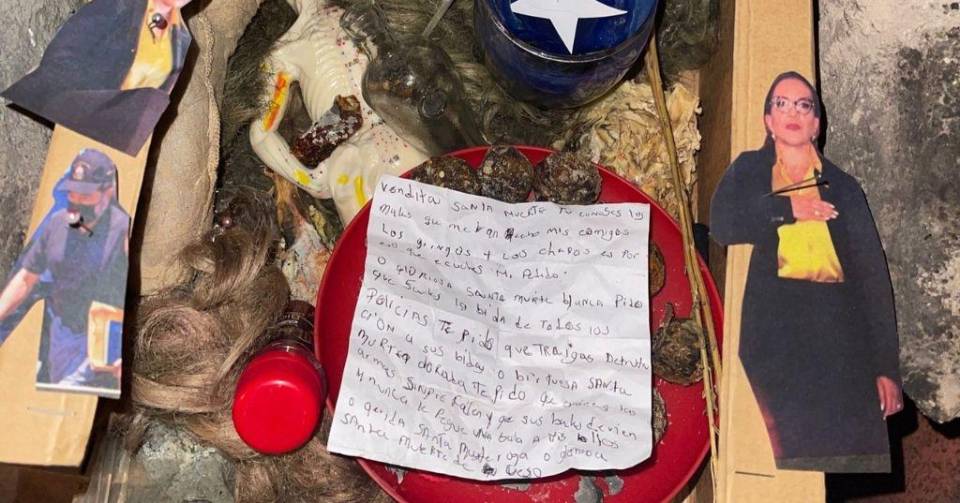 Vendita SANTA MUERTE TU conoses los
males que me han hecho mis emigos
Los gringos y Los chapos es por
eso que escuches Mi Pedido.
O gloriosa SANTA MUERTE blanca Pido
que la bida de Todos los
Policias Te Pido que Traigas Destru
ción a sus bidas o birtuosa SANTA
MUERTE doRada Te pido que
armas siempre fallen y que sus balas devien
y nunca le Pegue una bala a tus hijos
o querida SANTA MUERTE roja o
SANTA MUERTE de